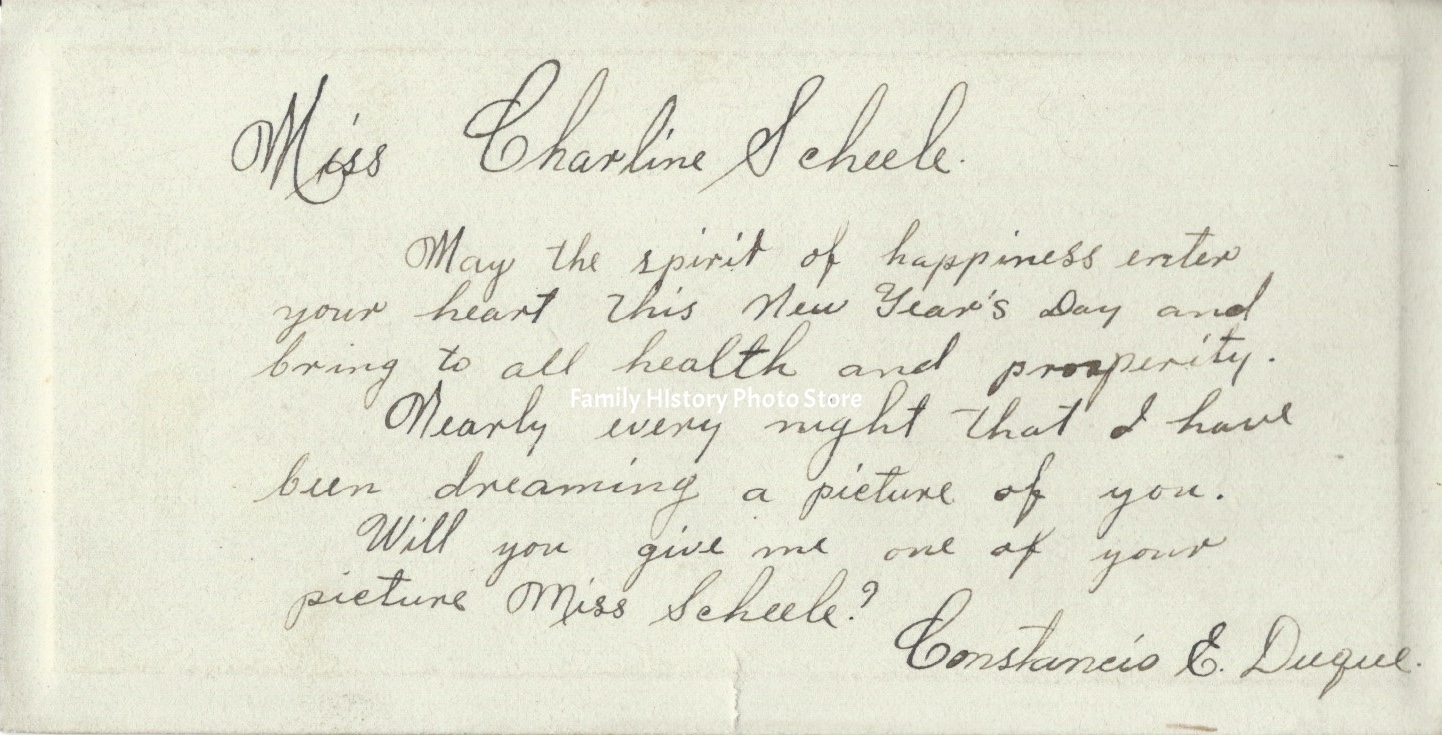 Miss Charline Scheele.
May the spirit of happiness enter
your heart this New Year's Day and
bring to all health and prosperity.
Family History Photo Store
Nearly every night that I have
been dreaming a picture of you.
Will you give me one of your
picture Miss Scheele?
Constancio E. Duque.